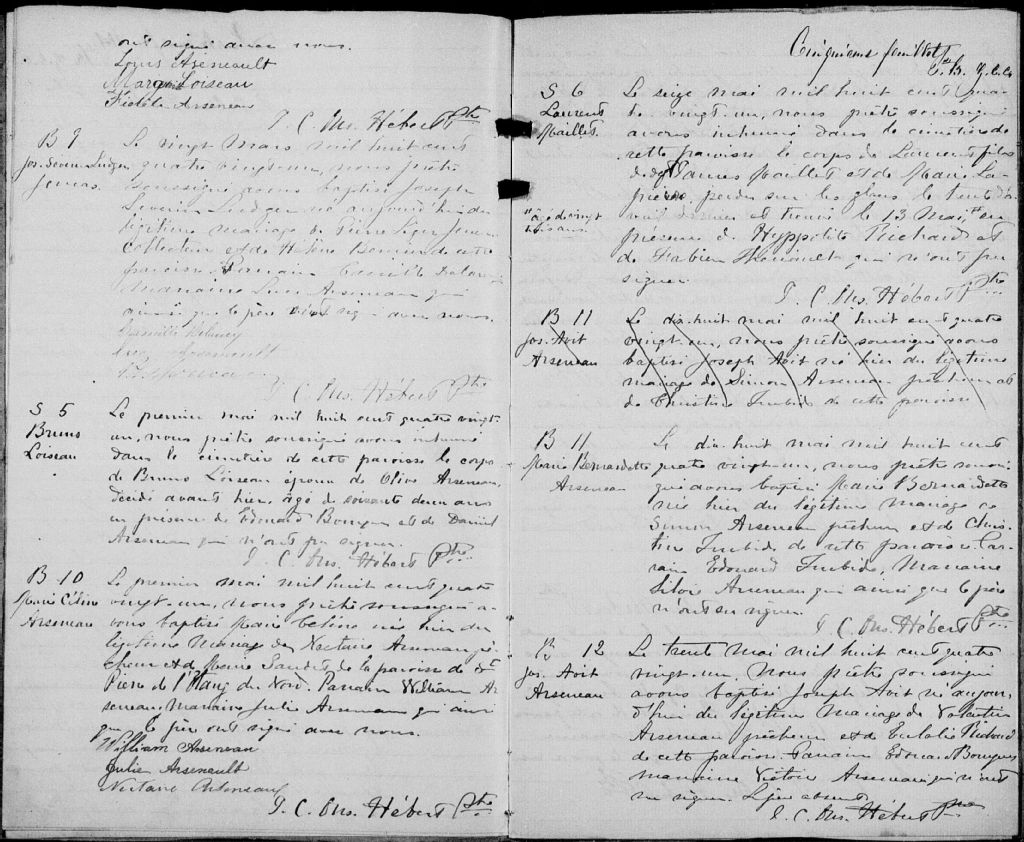 ont signé avec nous.
Louis Arseneault
Marguerite Loiseau
Fidèle Arseneau
J. C. Ons. Hébert Ptre
B 9
Jos. Severin Ludger
Jomas
Le vingt Mars mil huit cent
quatre vingt-un, nous prêtre
soussigné avons baptisé Joseph
Severin Ludger né aujourd'hui du
légitime mariage de Pierre Léger
Collecteur et de Hélène de cette
paroisse. Parrain Camille Delaney
Marraine Lucie Arseneau qui
ainsi que le père ont signé avec nous.
Camille Delaney
Lucy Arseneault
J. C. Ons. Hébert Ptre
S 5
Bruno
Loiseau
Le premier mai mil huit cent quatre vingt
un, nous prêtre soussigné avons inhumé
dans le cimetière de cette paroisse le corps
de Bruno Loiseau époux de Olive Arseneau,
décédé avant hier, âgé de soixante deux ans
en présence de Edouard Bourque et de Daniel
Arseneau qui n'ont pu signer.
J. C. Ons. Hébert Ptre
B 10
Marie Céline
Arseneau
Le premier mai mil huit cent quatre
vingt-un, nous prêtre soussigné a-
vons baptisé Marie Céline née hier du
légitime mariage de Nectaire Arseneau pê-
cheur et de Marie Landet de la paroisse de St
Pierre de l'Etang du Nord. Parrain William Ar
seneau, marraine Julie Arseneau qui ainsi
que le père ont signé avec nous.
William Arseneau
Julie Arseneault
Nectaire Arseneau
J. C. Ons. Hébert Ptre
Cinquième feuillet
S 6
Laurent
Maillet.
Le seize mai mil huit cent qua-
tre vingt-un, nous prêtre soussigné
avons inhumé dans le cimetière de
cette paroisse le corps de Laurent fils
de James Maillet et de Marie La-
pierre, perdu sur les glaces le trente d'a-
vril dernier et trouvé le 13 Mai, en
"âgé de vingt
trois ans
présence de Hyppolite Richard et
de Fabien Theriault qui n'ont pu
signer
J. C. Ons. Hébert Ptre
B 11
Jos. Avit
Arseneau
Le dix-huit mai mil huit cent quatre
vingt-un, nous prêtre soussigné avons
baptisé Joseph Avit né hier du légitime
mariage de Simon Arseneau pêcheur et
de Christine Turbide de cette paroisse
B 11
Marie Bernardette
Arseneau
Le dix-huit mai mil huit cent
quatre vingt-un, nous prêtre soussi-
gné avons baptisé Marie Bernardette
née hier du légitime mariage de
Simon Arseneau pêcheur et de Chris-
tine Turbide de cette paroisse. Par-
rain Edouard Turbide, Marraine
Silvie Arseneau qui ainsi que le père
n'ont su signer.
J. C. Ons. Hébert Ptre
B 12
Jos. Avit
Arseneau
Le trente mai mil huit cent quatre
vingt-un, Nous prêtre soussigné
avons baptisé Joseph Avit né aujour-
d'hui du légitime mariage de Valentin
Arseneau pêcheur et de Eulalie Richard
de cette paroisse. Parrain Edouard Bourque
marraine Victoire Arseneau qui n'ont
su signer. Le père absent
J. C. Ons. Hébert Ptre